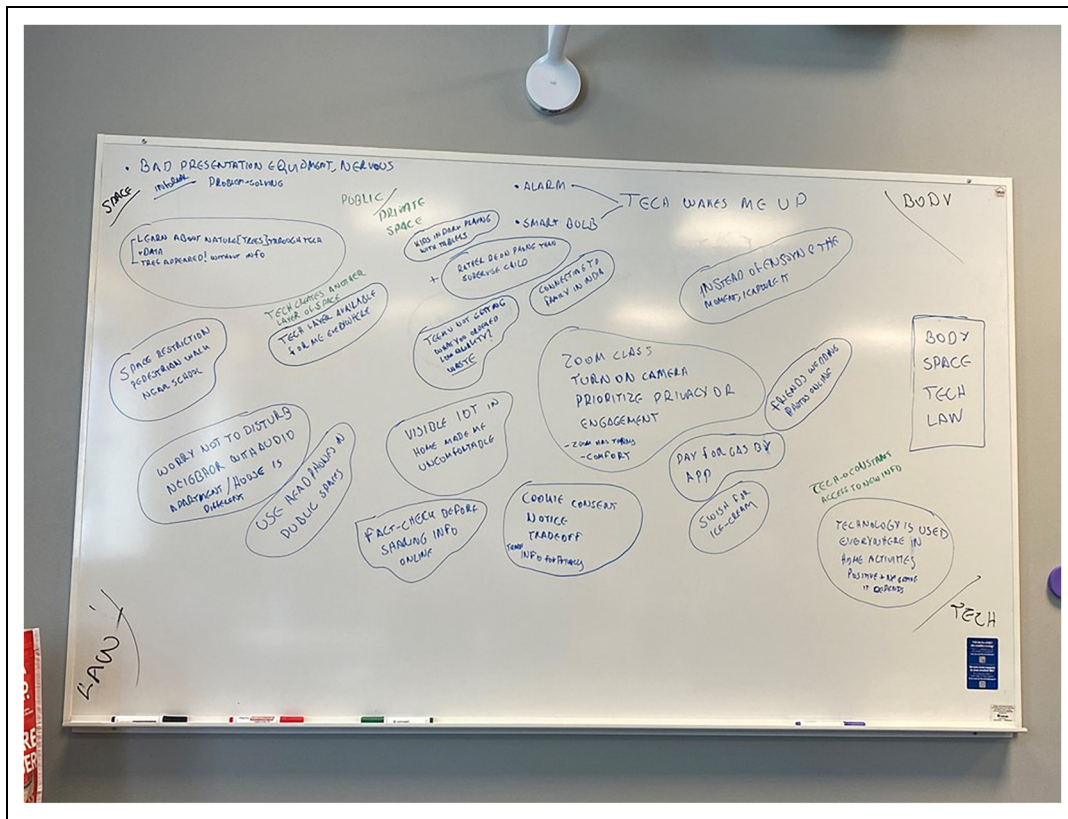 • BAD PRESENTATION EQUIPMENT, NERVOUS
PROBLEM-SOLVING
SPACE
PUBLIC/
PRIVATE
SPACE
• ALARM
• SMART BULB
TECH WAKES ME UP
BODY
LEARN ABOUT NATURE [TREES] THROUGH TECH
+ DATA
TREE APPEARED! WITHOUT INFO
KIDS IN PARK PLAYING
WITH TABLETS
+
RATHER BE ON PHONE THAN
SUPERVISE CHILD
CONNECTING TO
FAMILY IN INDIA
INSTEAD OF ENJOYING THE
MOMENT, I CAPTURE IT
TECH CREATES ANOTHER
LAYER OF SPACE
TECH LAYER AVAILABLE
FOR ME EVERYWHERE
TEMU NOT GETTING
WHAT YOU ORDERED
LOW QUALITY!
WASTE
SPACE RESTRICTION
PEDESTRIAN WALK
NEAR SCHOOL
ZOOM CLASS
TURN ON CAMERA
PRIORITIZE PRIVACY OR
ENGAGEMENT
- ZOOM HAS
- COMFORT
FRIENDS WEDDING
ONLINE
BODY
SPACE
TECH
LAW
WORRY NOT TO DISTURB
NEIGHBOR WITH AUDIO
APARTMENT/HOUSE IS
DIFFERENT
USE HEADPHONES IN
PUBLIC SPACES
VISIBLE IOT IN
HOME MADE ME
UNCOMFORTABLE
PAY FOR GAS BY
APP
SWISH FOR
ICE-CREAM
FACT-CHECK BEFORE
SHARING INFO
ONLINE
COOKIE CONSENT
NOTICE
TRADEOFF
INFO FOR PRIVACY
TECH → CONSTANT
ACCESS TO NEW INFO
TECHNOLOGY IS USED
EVERYWHERE IN
HOME ACTIVITIES
POSITIVE + NEGATIVE
IT DEPENDS
LAW
TECH